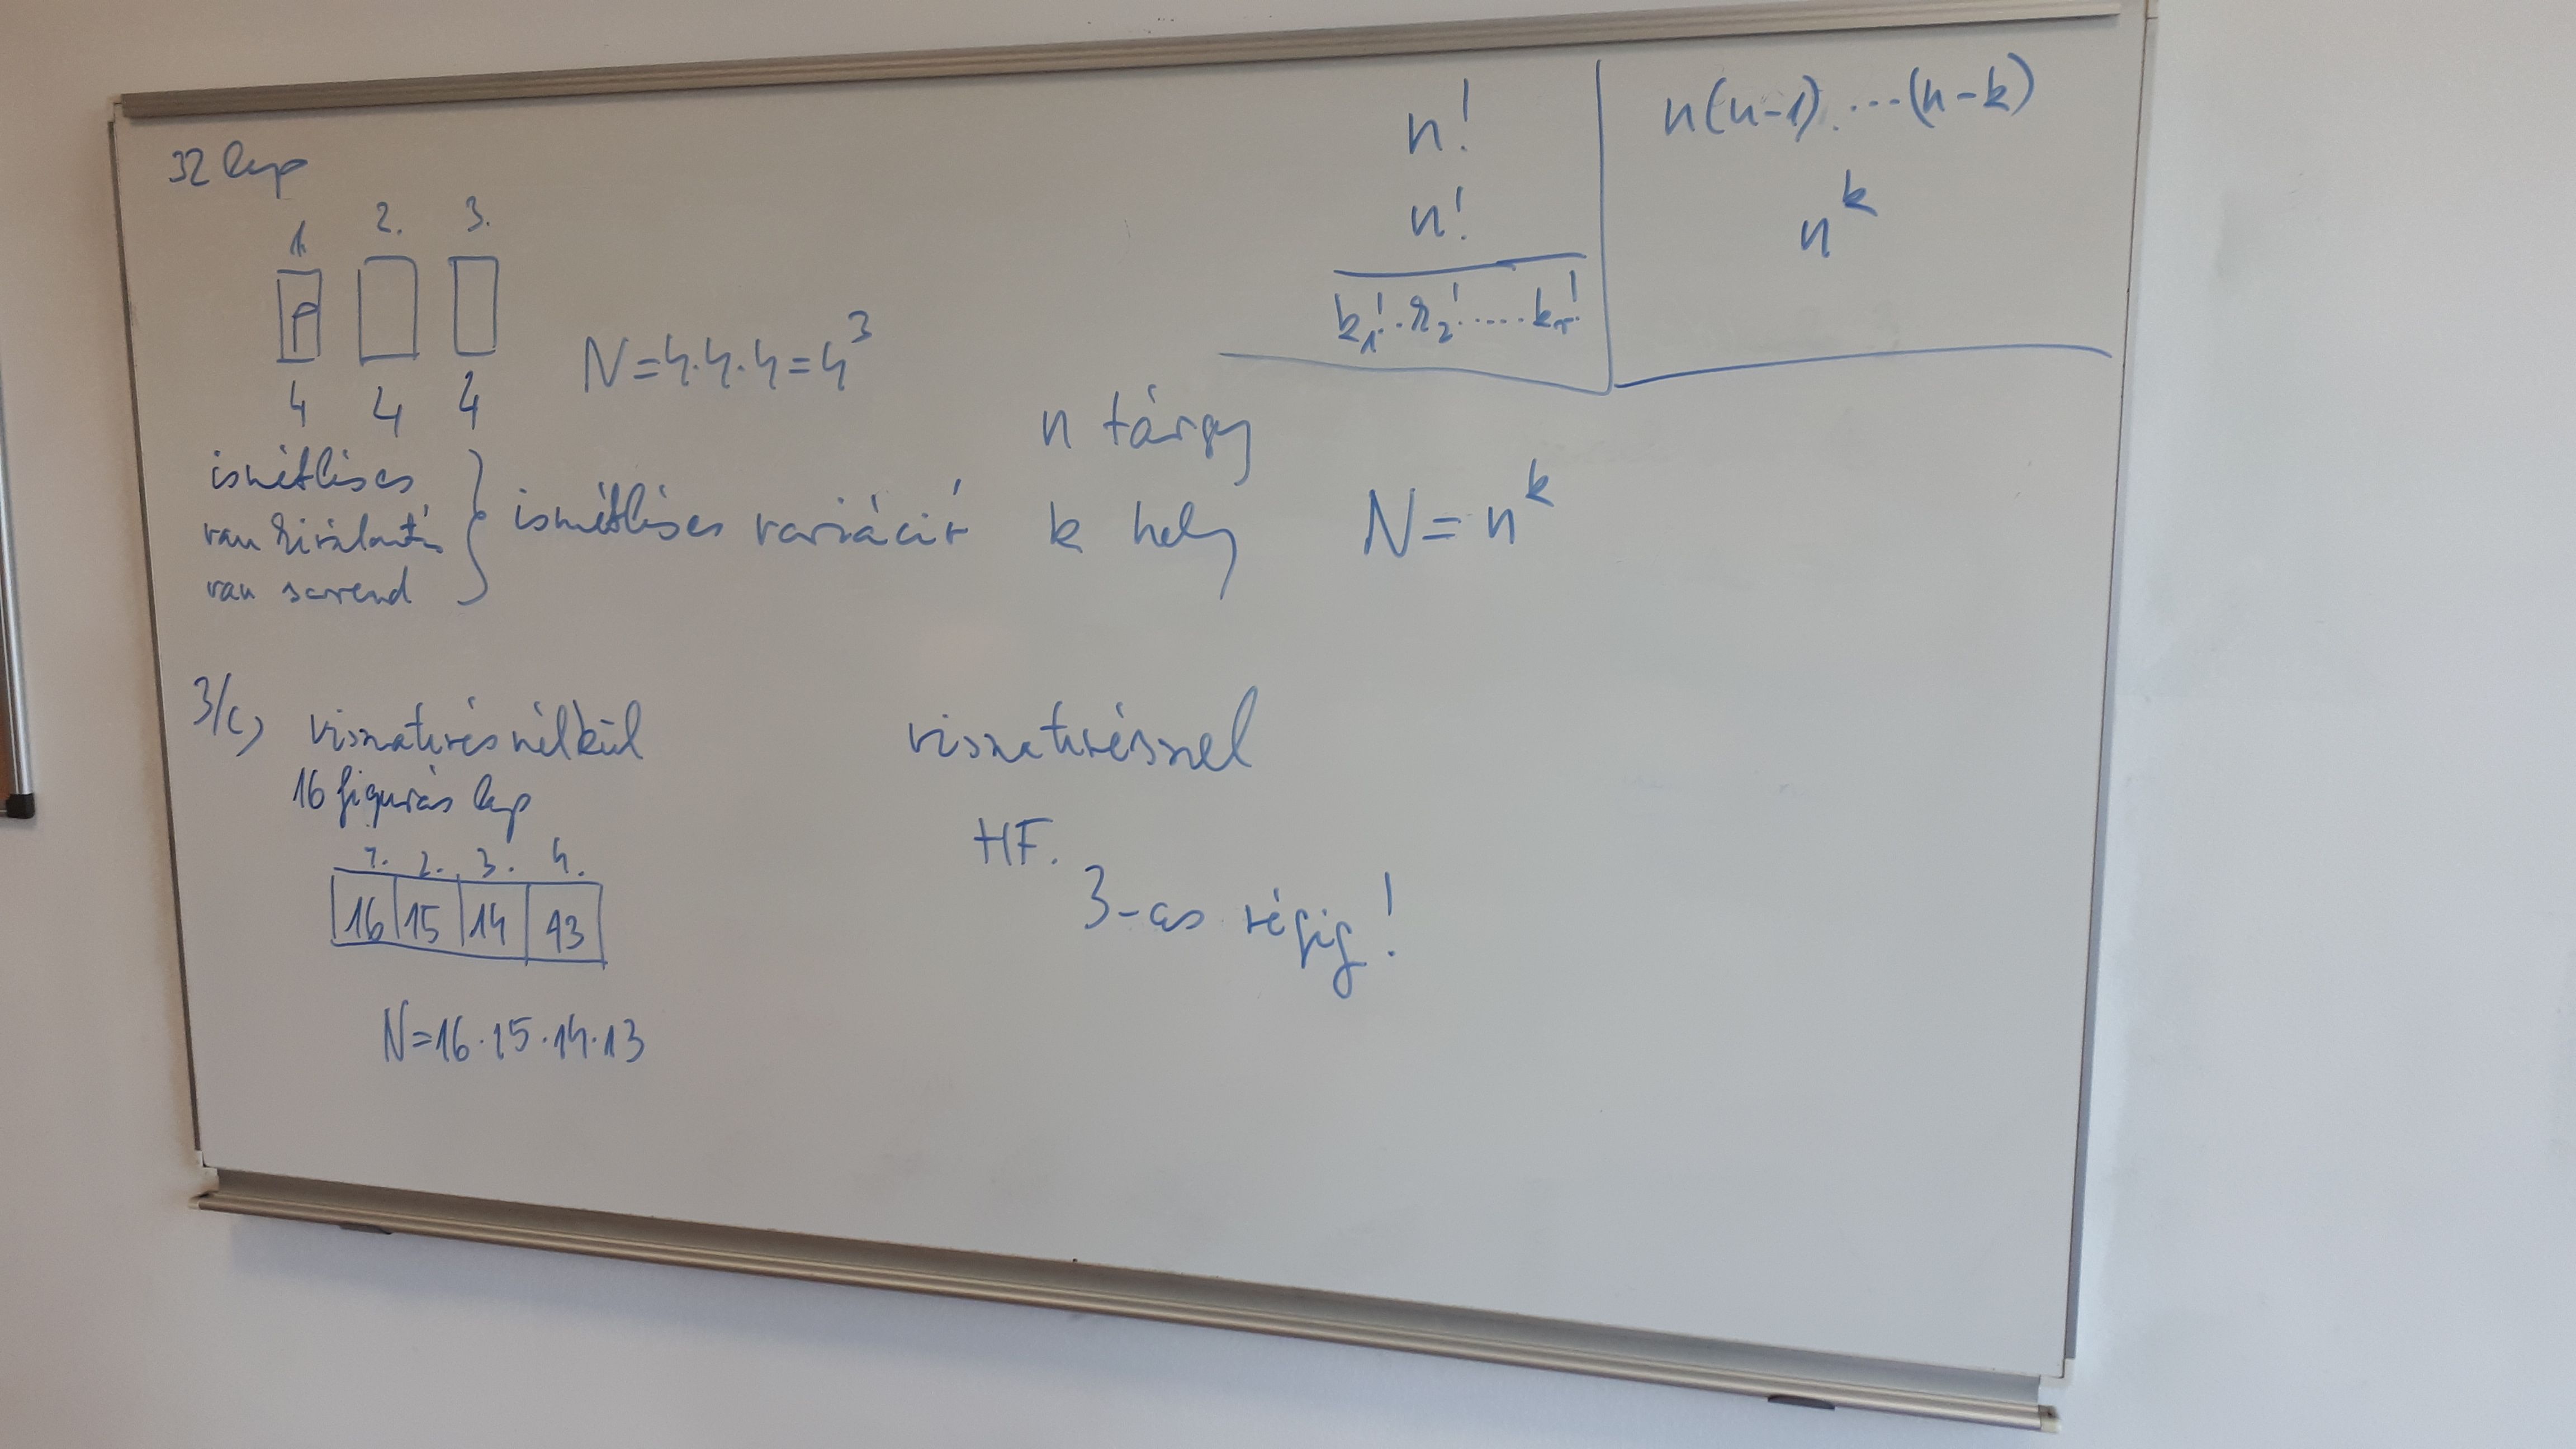 32 lap
1. 2. 3.
P
4 4 4
N=4·4·4=4³
ismétléses
van kiválasztás
van sorrend
ismétléses variáció
n tárgy
k hely
N=n^k
n!
n!
k₁!·k₂!·....·kᵣ!
n(n-1)·...(n-k)
n^k
3/c) visszatevés nélkül
16 figurás lap
1. 2. 3. 4.
16 15 14 13
N=16·15·14·13
visszatevéssel
HF.
3-as végig!